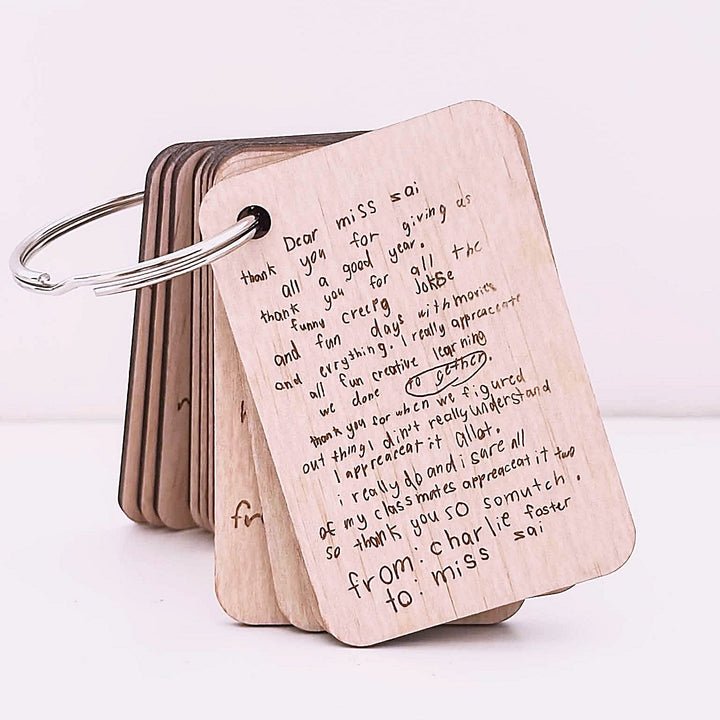 Dear miss sai
thank you for giving us
all a good year.
thank you for all the
funny creepg jokse
and fun days with movies
and evrything. I really appreaceate
all fun creative learning
we done to gether.
thank you for when we figured
out thing I din't really understand
I appreaceat it allot.
i really do and i sare all
of my class mates appreaceat it two
so thank you so somutch.
from: charlie foster
to: miss sai
fr